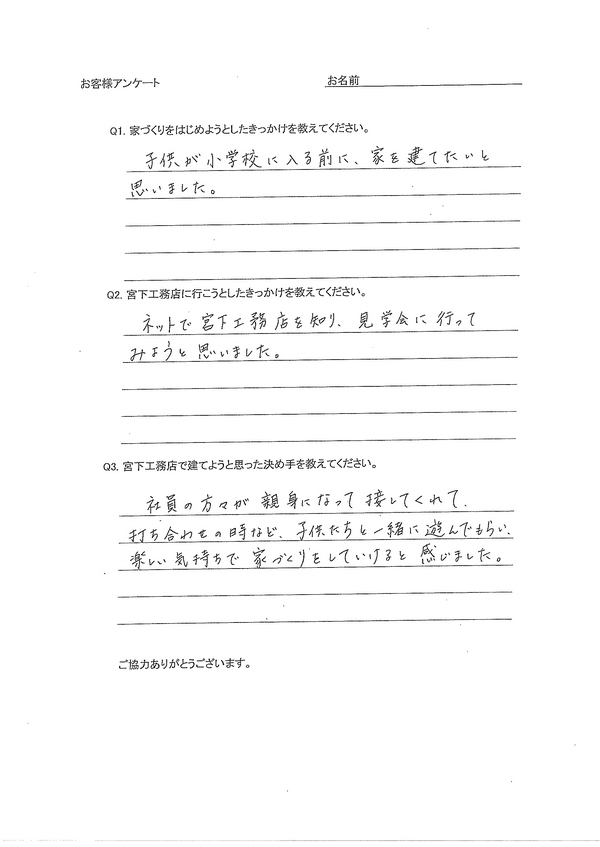 お客様アンケート
お名前
Q1. 家づくりをはじめようとしたきっかけを教えてください。
子供が小学校に入る前に、家を建てたいと
思いました。
Q2. 宮下工務店に行こうとしたきっかけを教えてください。
ネットで宮下工務店を知り、見学会に行って
みようと思いました。
Q3. 宮下工務店で建てようと思った決め手を教えてください。
社員の方々が親身になって接してくれて、
打ち合わせの時など、子供たちと一緒に遊んでもらい、
楽しい気持ちで家づくりをしていけると感じました。
ご協力ありがとうございます。